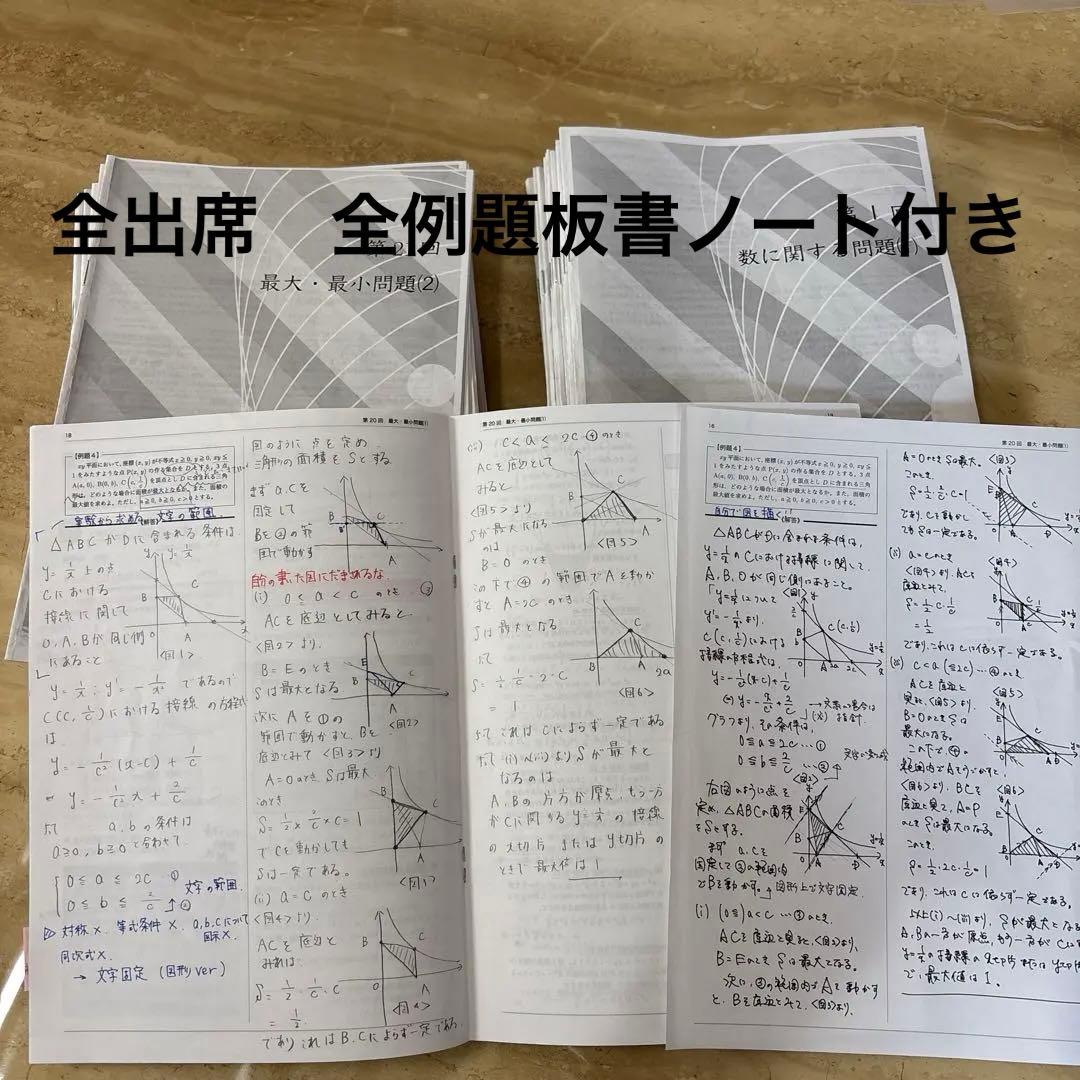 全出席　全例題板書ノート付き
最大・最小問題(2)
第1回
数に関する問題(1)
18
第20回　最大・最小問題(1)
【例題4】
xy平面において, 座標(x, y)が不等式x≧0, y≧0, xy≦
1をみたすような点P(x, y)の作る集合をDとする. 3点
A(a, 0), B(0, b), C(c, 1/c)を頂点とし
形は, どのような場合に面積が最大となるか. また, 面積の
最大値を求めよ. ただし, a≧0, b≧0, c>0とする.
実験から求める 文字の範囲
《解答》
△ABCがDに含まれる条件は
y=1/x 上の点
Cにおける
接線に関して
O, A, Bが同じ側
にあること
<図1>
y=1/x : y'=-1/x² であるので
C(C, 1/c)における接線の方程式
は
y=-1/c²(x-c)+1/c
⇔ y=-1/c² x+2/c
よって a, bの条件は
a≧0, b≧0 と合わせて
0≦a≦2c ①
0≦b≦2/c ②
文字の範囲.
対称×. 等式条件×. a,b,cについて
同次式×.
→ 文字固定 (図形ver)
図のように点を定め
三角形の面積をSとする
まずa.Cを
固定して
Bを②の範
囲で動かす
自分の書いた図にだまされるな.
(i) 0≦a<c のとき ③
ACを底辺としてみると
<図2>より.
B=Eのとき
Sは最大となる
<図2>
次にAを①の
範囲で動かすと, Bを
底辺とみて <図3>より
A=0のときSは最大
このとき
S=1/2×2/c×c=1
でCを動かしても
Sは一定である.
(ii) a=c のとき
<図4>より.
ACを底辺と
みれば
S=1/2・1/c・c
=1/2.
であり これはB.Cによらず一定である.
第20回　最大・最小問題(1)
(iii) c<a≦2c ④のとき
ACを底辺として
みると
<図5>より
Sが最大になる
のは
<図5>
B=0のとき
この下で④の範囲でAを動か
すとA=2cのとき
Sは最大となる
よって
S=1/2・1/c・2・c
=1
<図6>
よって これはCによらず一定である
よって(i)(ii)(iii)よりSが最大と
なるのは
A,Bの片方が原点, もう一方
がCに関するy=1/xの接線
のx切片 または y切片の
ときで 最大値は1
16
第20回　最大・最小問題(1)
【例題4】
xy平面において, 座標(x, y)が不等式x≧0, y≧0, xy≦
1をみたすような点P(x, y)の作る集合をDとする. 3点
A(a, 0), B(0, b), C(c, 1/c)を頂点としDに含まれる三角
形は, どのような場合に面積が最大となるか. また, 面積の
最大値を求めよ. ただし, a≧0, b≧0, c>0とする.
自分で図を描く
《解答》
△ABCがDに含まれる条件は,
y=1/xのCにおける接線に関して
A, B, Oが同じ側にあること.
y=1/xについて
y'=-1/x²より.
C(c,1/c)における
接線の方程式は,
y=-1/c²(x-c)+1/c
グラフより, その条件は,
0≦a≦2c …①
0≦b≦2/c …②
右図のように点を
定め, △ABCの面積
をSとする.
まず a.cを
固定して②の範囲内
でBを動かす.
図形上で文字固定
(i) (0≦)a<c …③のとき.
ACを底辺と見ると, <図2>より,
B=EのときSは最大になる.
次に, ①の範囲内でAを動かす
と, Bを底辺とみて, <図3>より.
A=0のときS最大.
<図3>
このとき
S=1/2・2/c・c=1
でSは一定である.
(ii) a=cのとき
<図4>
<図4>より, ACを
底辺とみて,
S=1/2・c・1/c
=1/2
であり, これはcに依らず一定である.
(iii) c<a(≦2c)…④のとき
ACを底辺と
<図5>
見ると, <図5>より,
B=0のときSは
最大になる.
この下で④の
範囲内でAをうごかすと,
<図6>より, BCを
<図6>
Sは最大になる.
このとき,
S=1/2・2c・1/c=1
であり, これはcに依らず一定である.
以上(i)〜(iii)より, Sが最大となる
で, 最大値は1.